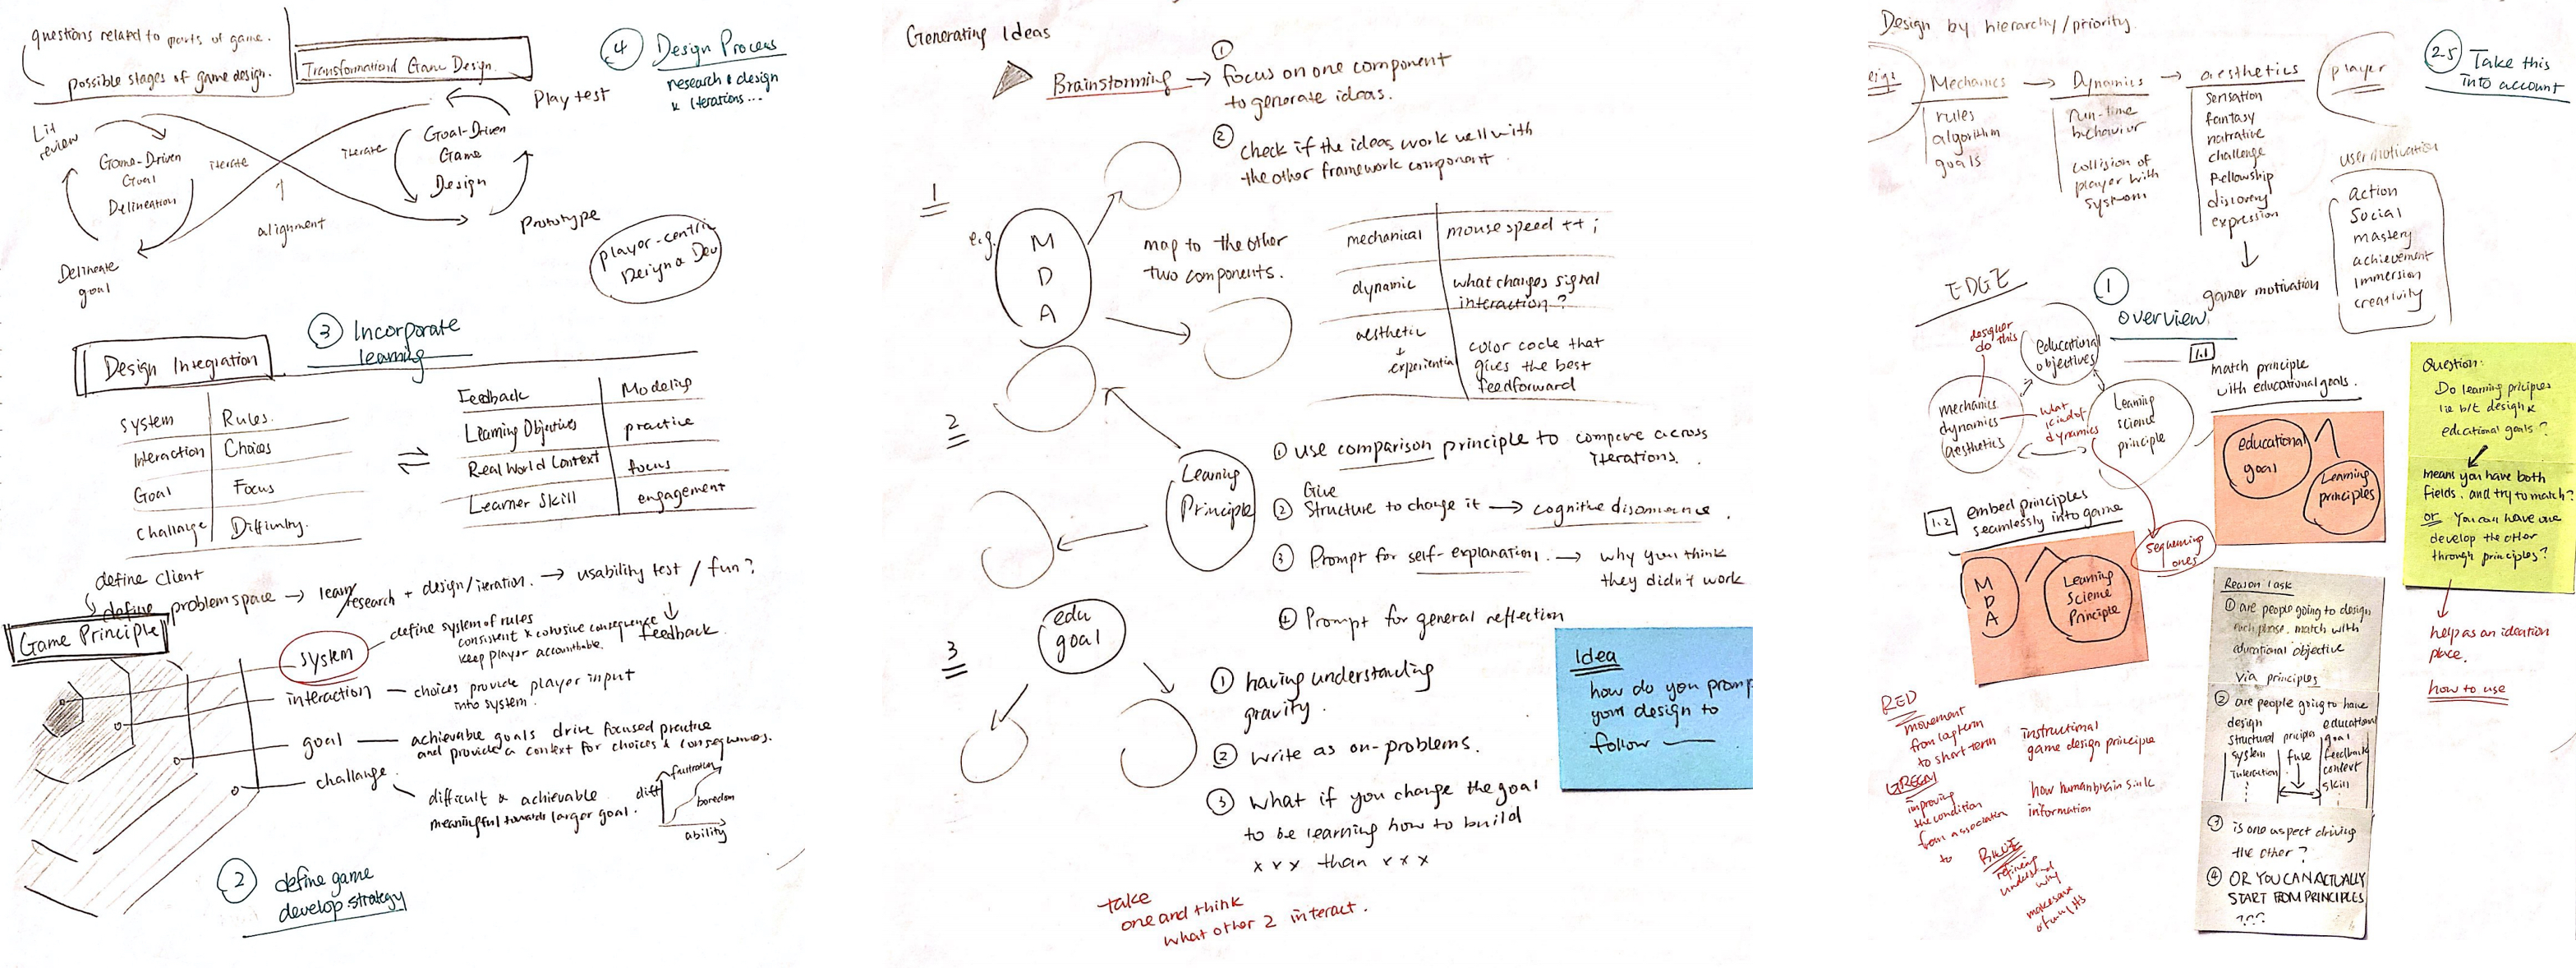 questions related to parts of game.
possible stages of game design.
Transformational Game Design.
④ Design Process
research & design
& Iterations...
Play test
Lit
review
Game-Driven
Goal
Delineation
iterate
alignment
iterate
Goal-Driven
Game
Design
Prototype
Delineate
goal
player-centric
Design & Dev
③ Incorporate
learning
Design Integration
System Rules.
Interaction Choices
Goal Focus
Challenge Difficulty.
Feedback Modeling
Learning Objectives practice
Real World Context focus
Learner Skill engagement
define client
define problem space → learn/research + design/iteration. → usability test / fun?
feedback
Game Principle
system
define system of rules
consistent & cohesive consequence
keep player accountable.
interaction — choices provide player input
into system.
goal — achievable goals drive focused practice
and provide a context for choices & consequences.
challenge
difficult & achievable
meaningful towards larger goal.
diff
frustration
boredom
ability
② define game
develop strategy
Generating Ideas
Brainstorming → ① focus on one component
to generate ideas.
② check if the ideas work well with
the other framework component.
1
e.g.
M
D
A
map to the other
two components.
mechanical mouse speed ++ ;
dynamic what changes signal
interaction?
aesthetic
+
experiential
color code that
gives the best
feedforward
2
Learning
Principle
① use comparison principle to compare across
iterations.
② Give
Structure to change it → cognitive dissonance.
③ Prompt for self-explanation. → why you think
they didn't work
④ Prompt for general reflection
3
edu
goal
① having understanding
gravity.
② write as on-problems.
③ what if you change the goal
to be learning how to build
x x x than x x x
Idea
how do you promp
your design to
follow —
take
one and think
what other 2 interact.
Design by hierarchy/priority.
Mechanics → Dynamics → aesthetics
player
rules
algorithm
goals
run-time
behavior
collision of
player with
system
sensation
fantasy
narrative
challenge
fellowship
discovery
expression
gamer motivation
2.5 Take this
into account
user motivation
action
social
mastery
achievement
immersion
creativity
EDGE
① overview
designer
do this
educational
objectives
mechanics
dynamics
aesthetics
what
kind of
dynamics
Learning
science
principle
1.1 match principle
with educational goals.
educational
goal
Learning
principles
1.2 embed principles
seamlessly into game
M
D
A
Learning
Science
Principle
sequencing
ones
Question:
Do learning priciples
lie b/t design &
educational goals?
means you have both
fields, and try to match?
or You can have one
develop the other
through principles?
help as an ideation
place.
how to use
Reason task
① are people going to design
each phase, match with
educational objective
via principles
② are people going to have
design educational
structural principles goal
system fuse feedback
interaction context
skill
③ is one aspect driving
the other?
④ OR YOU CAN ACTUALLY
START FROM PRINCIPLES
???
RED
movement
from long term
to short term
GREEN
improving
the condition
from association
to
BLUE
refining
understand
why
make sure
instructional
game design principle
how human brain sink
information